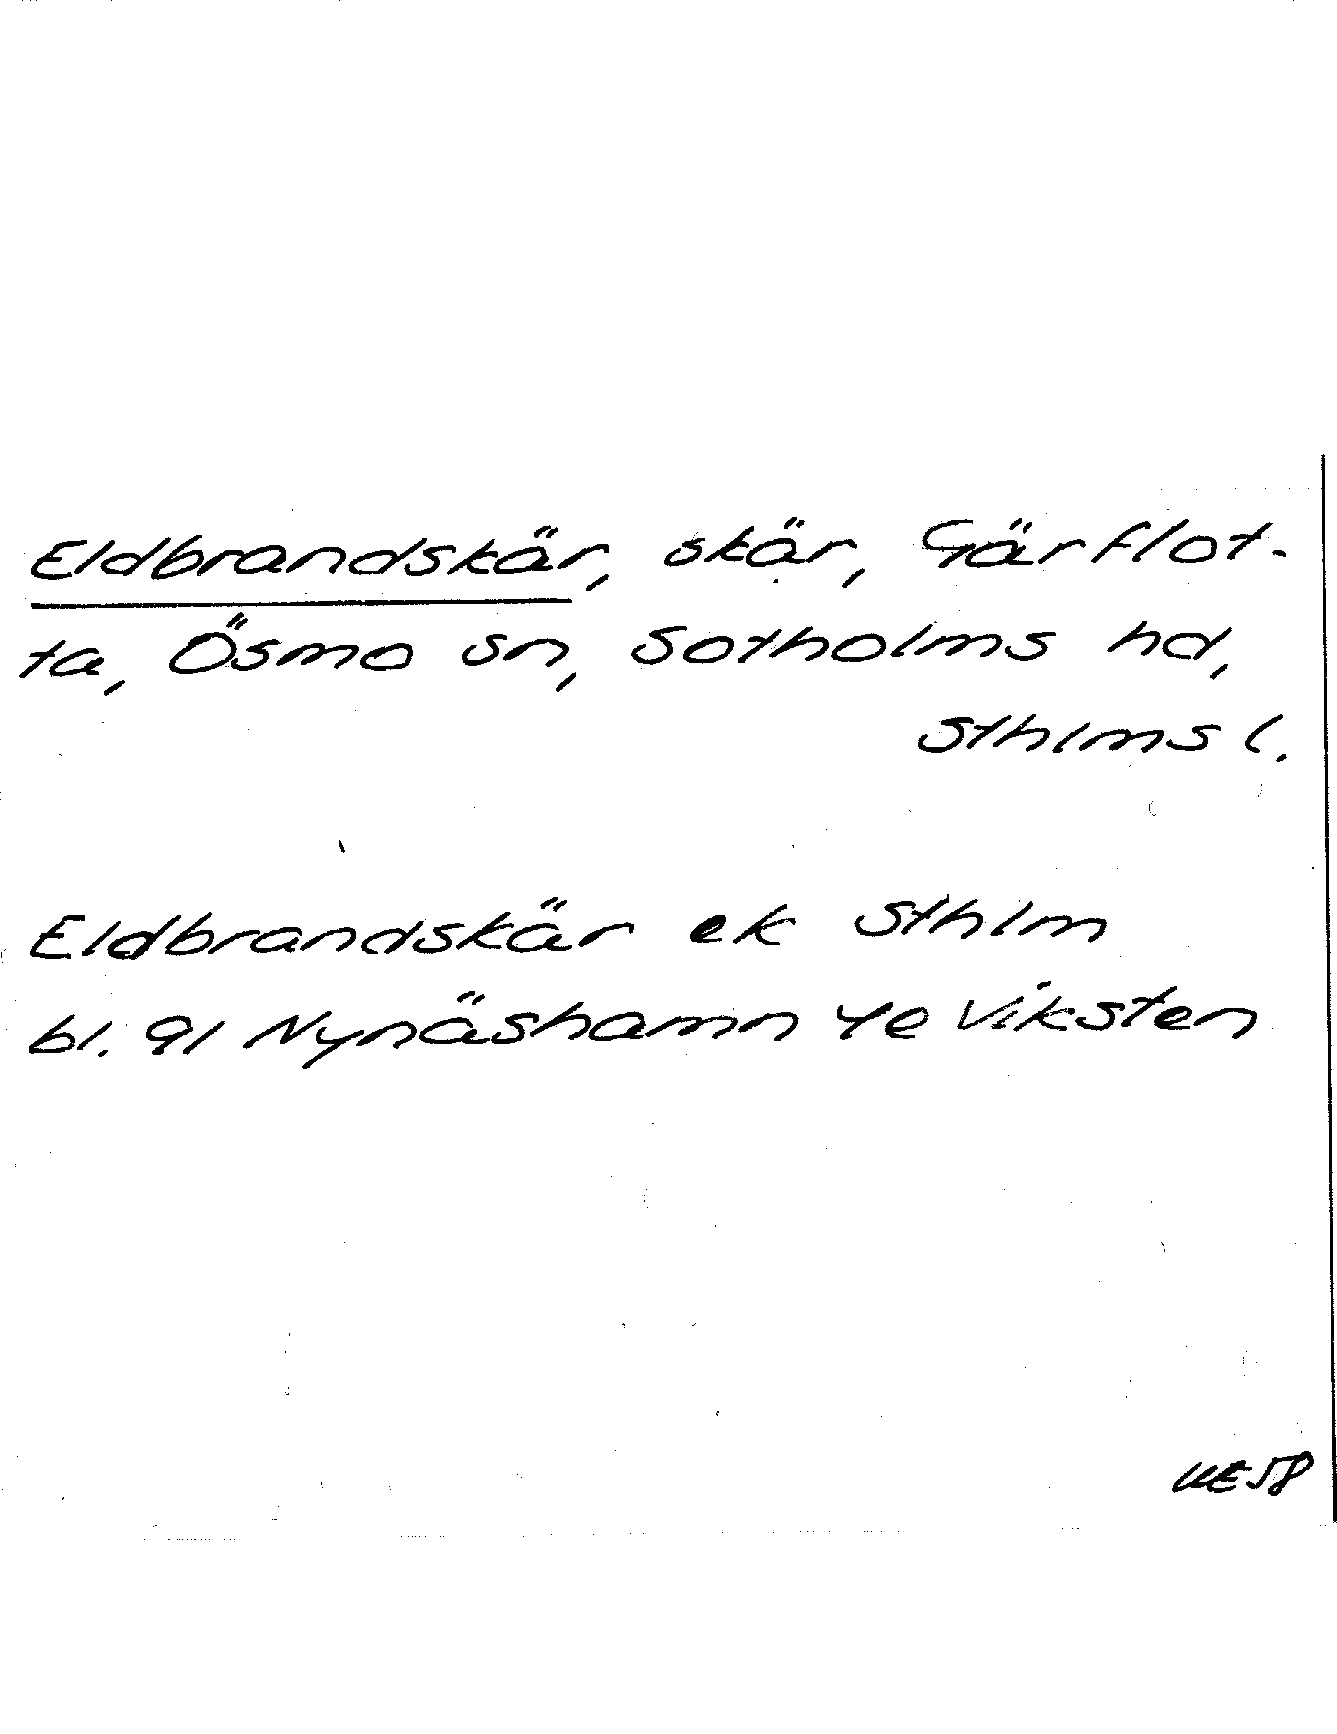 Eldbrandskär, skär, Gärflot-
ta, Ösmo sn, Sotholms hd,
Sthlms l.
Eldbrandskär ek Sthlm
bl. 91 Nynäshamn 4e Viksten
UE58